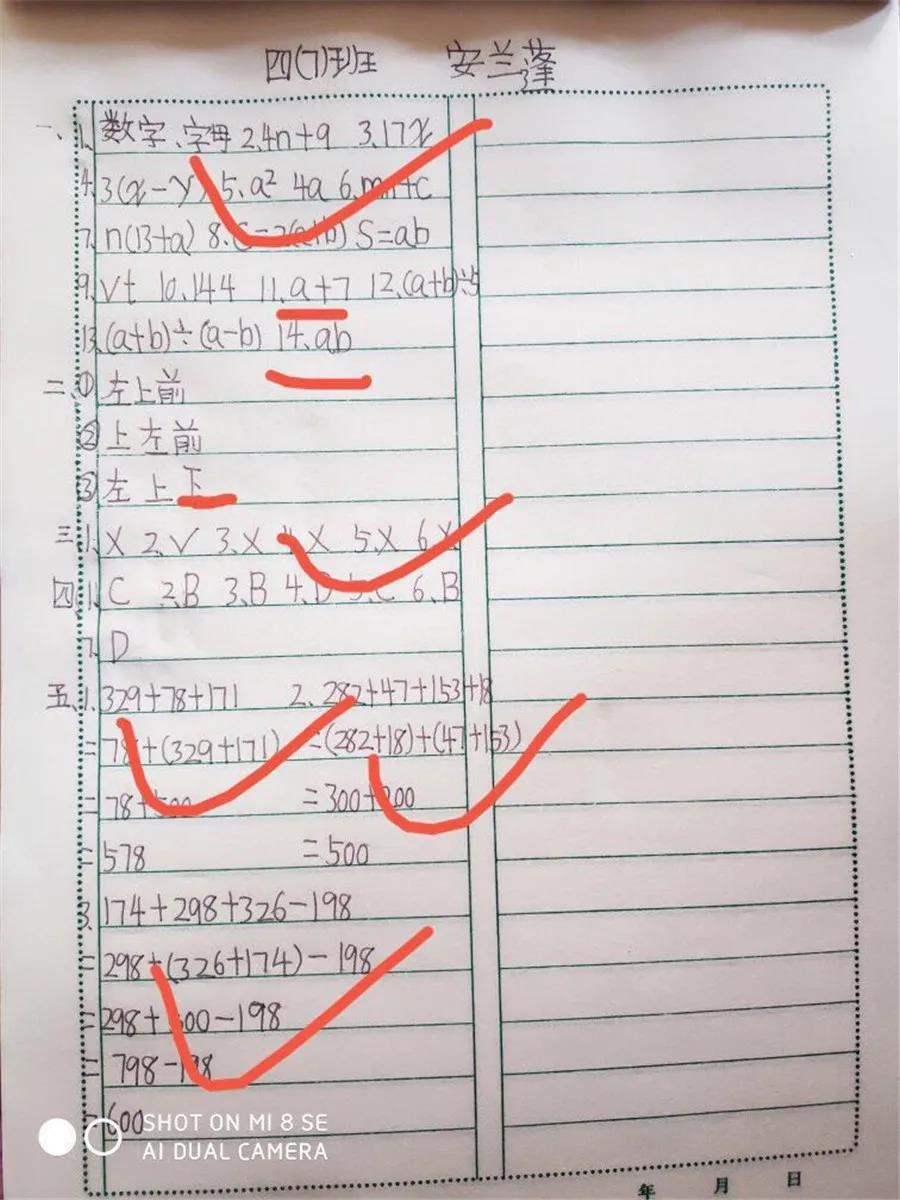 四(7)班 安兰蓬
一、1、数字、字母 2、4n+9 3、17x
4、3(x-y) 5、a² 4a 6、mn+c
7、n(13+a) 8、C=2(a+b) S=ab
9、vt 10、144 11、a+7 12、(a+b)÷5
13、(a+b)÷(a-b) 14、ab
二、① 左上前
② 上左前
③ 左上下
三、1、X 2、√ 3、X 4、X 5、X 6、X
四、1、C 2、B 3、B 4、D 5、C 6、B
7、D
五、1、329+78+171 2、282+47+153+18
=78+(329+171) =(282+18)+(47+153)
=78+500 =300+200
=578 =500
3、174+298+326-198
=298+(326+174)-198
=298+500-198
=798-198
=600
SHOT ON MI 8 SE
AI DUAL CAMERA
年 月 日